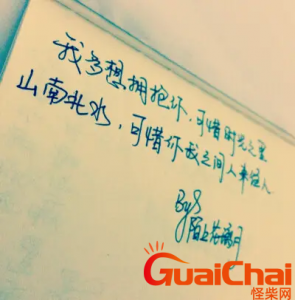 我多想拥抱你,可惜时光之里
山南北水,可惜你我之间人来徃人
By§
陌上花满月
GuaiChai
怪柴网